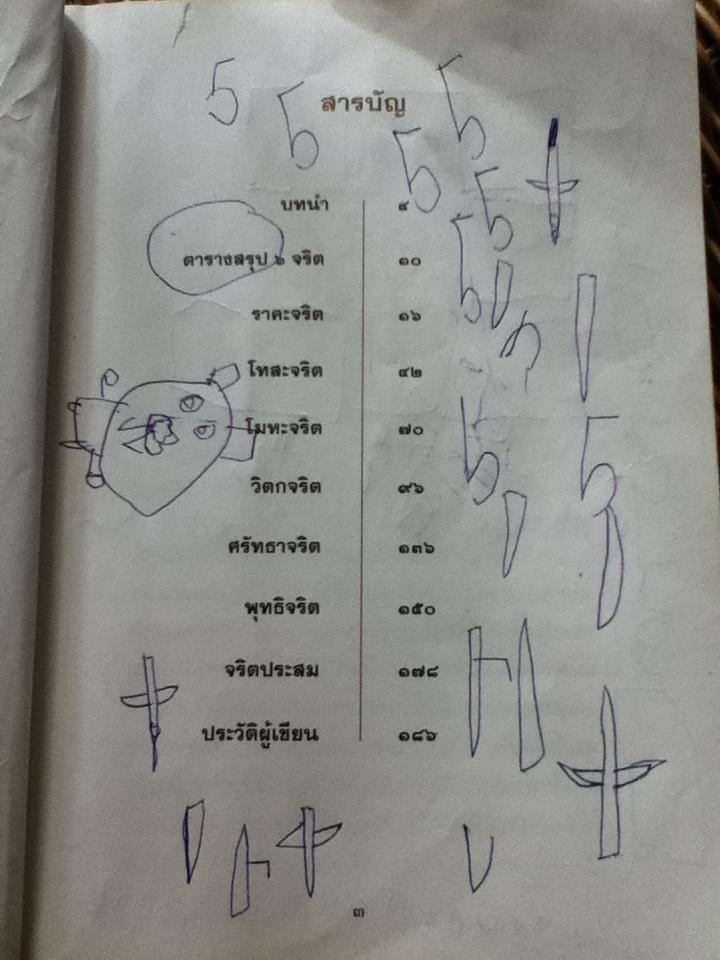 5
5
5
สารบัญ
5
บทนำ ๙
5
5
ตารางสรุป ๖ จริต ๑๐
ราคะจริต ๑๖
โทสะจริต ๔๒
โมหะจริต ๗๐
5
5
วิตกจริต ๙๖
ศรัทธาจริต ๑๓๖
พุทธิจริต ๑๕๐
จริตประสม ๑๗๘
ประวัติผู้เขียน ๑๘๖
๓